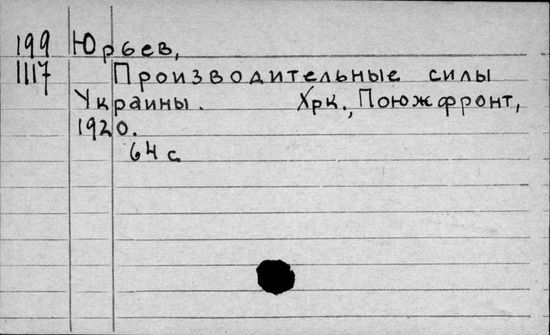 199 Юрьев,
1117 Производительные силы
Украины. Хрк., Поюжфронт,
1920.
64 с